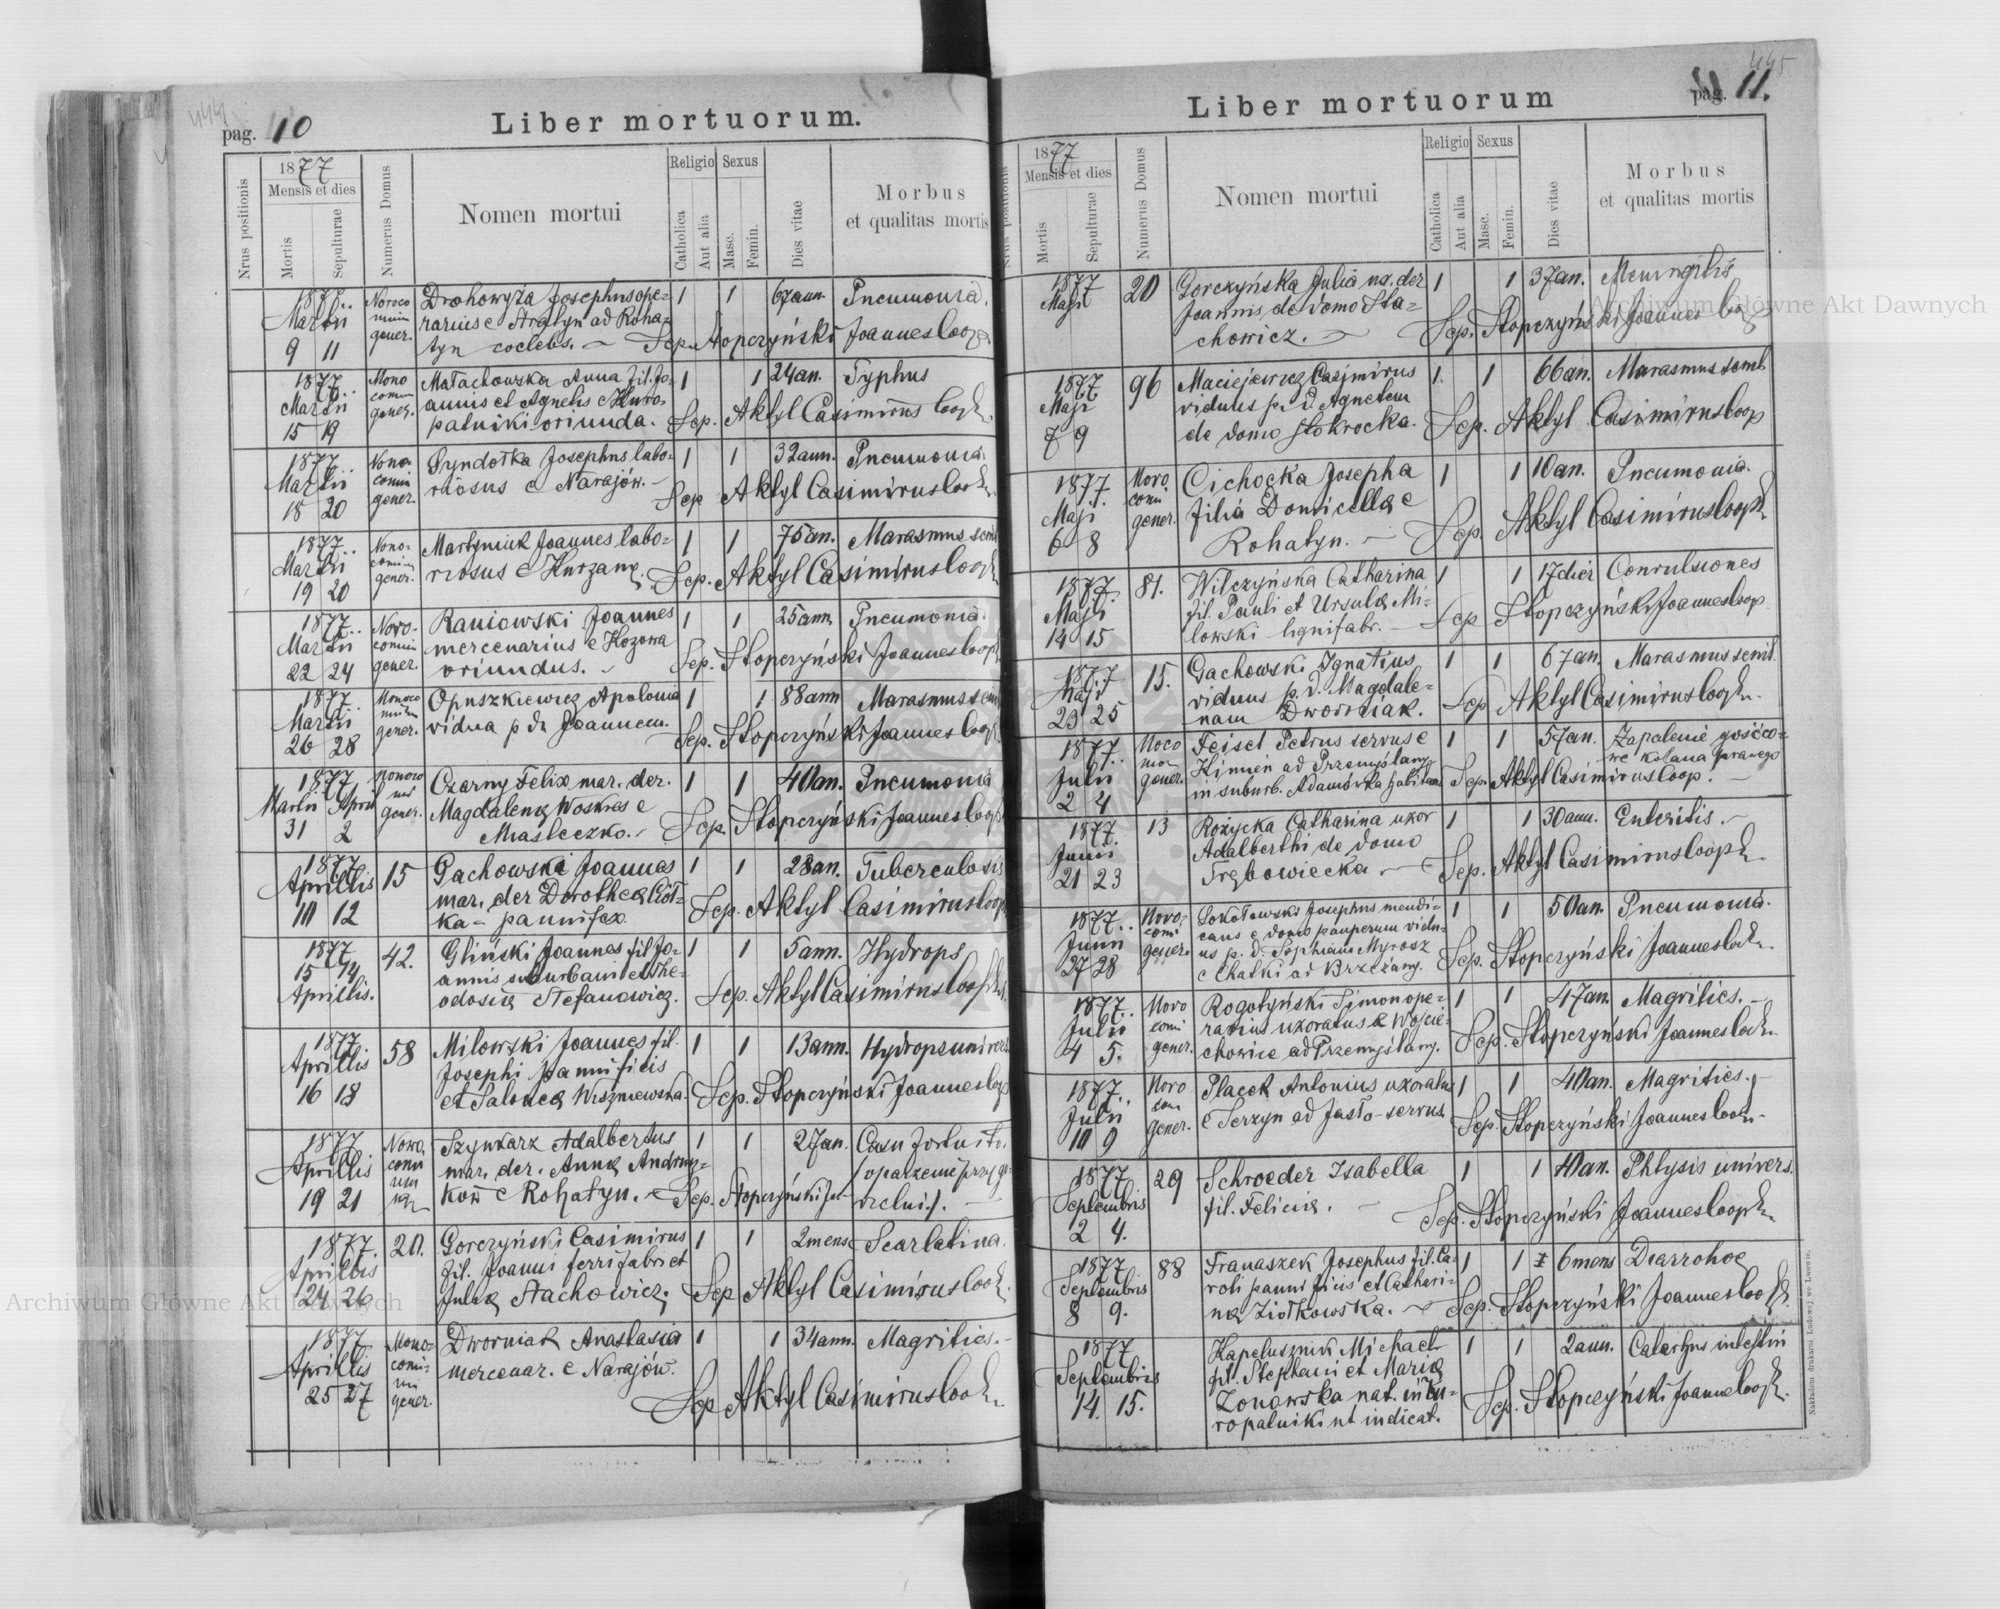 444
pag. 10
Liber mortuorum.
Nrus positionis
1877
Mensis et dies
Mortis
Sepulturae
Numerus Domus
Nomen mortui
Religio
Catholica
Aut alia
Sexus
Masc.
Femin.
Dies vitae
Morbus
et qualitas mortis
1877 Martii 9 11
Drohowyża Josephus ope-
rarius e Stratyn ad Roha-
tyn coelebs.
1 1 67 ann. Pneumonia.
Sep. Stopczyński Joannes Coop.
1877 Martii 15 19
Małachowska Anna fil. Jo-
annis et Agnetis e Kuro-
patniki oriunda.
1 1 24 an. Typhus
Sep. Aktyl Casimirus Coop.
1877 Martii 18 20
Pyndołka Josephus labo-
riosus e Narajów.
1 1 32 ann. Pneumonia.
Sep Aktyl Casimirus
1877 Martii 19 20
Martyniuk Joannes labo-
riosus e Kurzany.
1 1 75 an. Marasmus senil
Sep. Aktyl Casimirus Coop.
1877 Martii 22 24
Raniowski Joannes
mercenarius e Kozowa
oriundus.
1 1 25 ann. Pneumonia.
Sep. Stopczyński Joannes Coop
1877 Martii 26 28
Opuszkiewicz Apolonia
vidua p. d. Joannem.
1 1 88 ann Marasmus sen
Sep. Stopczyński Joannes Coop
1877 Martii April 31 2
Czarny Felix mar. der.
Magdalenę Woskias e
Miasteczko.
1 1 40 an. Pneumonia
Sep. Stopczyński Joannes Coop
1877 Aprilis 10 12 15
Gachowski Joannes
mar. der Dorotheą Ciot-
ka - pannifex
1 1 28 an. Tuberculosis
Sep. Aktyl Casimirus Coop
1877 15 14 Aprilis. 42.
Gliński Joannes fil. Jo-
annis suburbani et The-
odosię Stefanowicz.
1 1 5 ann. Hydrops
Sep. Aktyl Casimirus Coop
1877 Aprilis 16 18 58
Milowski Joannes fil.
Josephi pannificis
et Salomeą Wiszniewska.
1 1 13 ann. Hydrops univers
Sep. Stopczyński Joannes Coop
1877 Aprilis 19 21
Szynkarz Adalbertus
mar. der. Anną Andrusz-
kow e Rohatyn.
1 1 27 an. Casu fortuito
/oparzenie przy go-
rzelni/.
Sep. Stopczyński
1877. Aprilis 24 26 20.
Gorczyński Casimirus
fil. Joanni ferrifabri et
Julią Stachowicz.
1 1 2 mens Scarlatina.
Sep Aktyl Casimirus
1877 Aprilis 25 27
Dworniak Anastasia
mercenar. e Narajów.
1 1 34 ann. Magritics.
Sep Aktyl Casimirus
445
pag. 11.
Liber mortuorum
Nrus positionis
1877
Mensis et dies
Mortis
Sepulturae
Numerus Domus
Nomen mortui
Religio
Catholica
Aut alia
Sexus
Masc.
Femin.
Dies vitae
Morbus
et qualitas mortis
1877 Maji 20
Gorczyńska Julia na. der
Joannis de domo Sta-
chowicz.
1 1 37 an. Meningitis
Sep. Stopczyński Joannes
1877 Maji 7 9 96
Maciejewicz Casimirus
viduus p. d. Agnetem
de domo Stokrocka.
1. 1 66 an. Marasmus senil
Sep. Aktyl Casimirus Coop
1877 Maji 6 8
Cichocka Josepha
filia Domicellą e
Rohatyn.
1 1 10 an. Pneumonia.
Sep. Aktyl Casimirus Coop
1877. Maji 14 15 81.
Wilczyńska Catharina
fil. Pauli et Ursulą Mi-
lowski lignifabr.
1 1 17 dier Convulsiones
Sep Stopczyński Joannes Coop
1877 Maji 23 25 15.
Gachowski Ignatius
viduus p. d. Magdale-
nam Dworniak.
1 1 67 an. Marasmus senil.
Sep Aktyl Casimirus Coop
1877. Julii 2 4
Feisel Petrus servus e
Kimień ad Przemyślany
in suburb. Adamówka habitans
1 1 57 an. Zapalenie gośćco-
we kolana prawego
Sep. Aktyl Casimirus Coop.
1877. Junii 21 23 13
Rożycka Catharina uxor
Adalberthi de domo
Trębowiecka.
1 1 30 ann. Enteritis.
Sep. Aktyl Casimirus Coop
1877. Junii 27 28
Sokołowski Josephus mendi-
cans e domo pauperum vidu-
us p. d. Sophiam Myrosz
e Chatki ad Brzeżany.
1 1 50 an. Pneumonia.
Sep. Stopczyński Joannes
1877. Julii 4 5.
Rogotyński Simon ope-
rarius uxoratus e Wojcie-
chowice ad Przemyślany.
1 1 47 an. Magritics.
Sep. Stopczyński Joannes
1877. Julii 10 9
Placek Antonius uxoratus
e Serzyn ad Jasło - servus
1 1 40 an. Magritics.
Sep. Stopczyński Joannes
1877. Septembris 2 4. 29
Schroeder Isabella
fil. Felicią.
1 1 40 an. Phtysis univers.
Sep. Stopczyński Joannes Coop
1877 Septembris 8 9. 88
Franaszek Josephus fil. Ca-
roli pannificis et Cathari-
ną Ziołkowska.
1 1 6 mens Diarrohoe
Sep. Stopczyński Joannes
1877 Septembris 14. 15.
Kapelusznik Michael
fil. Stephani et Marią
Zonowska nat. in Ku-
ropatniki ut indicat.
1 1 2 ann. Catarhus intestin
Sep. Stopczyński Joannes
Nakładem drukarni Ludowej we Lwowie.
Archiwum Główne Akt Dawnych
Archiwum Główne Akt Dawnych